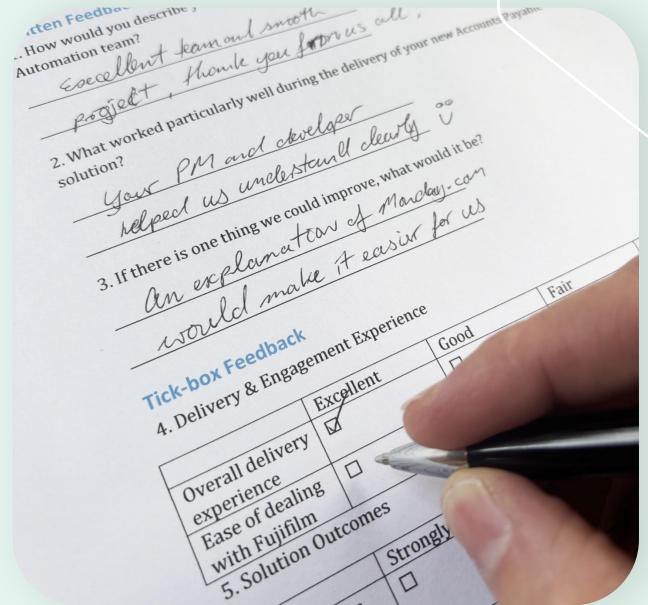 itten Feedba
. How would you describe y
Automation team?
Excellent team and smooth
project, thank you from us all.
2. What worked particularly well during the delivery of your new Accounts Payable
solution?
Your PM and developer
helped us understand clearly
3. If there is one thing we could improve, what would it be?
An explanation of Monday.com
would make it easier for us
Tick-box Feedback
4. Delivery & Engagement Experience
Excellent
Good
Fair
Overall delivery
experience
Ease of dealing
with Fujifilm
5. Solution Outcomes
Strongly